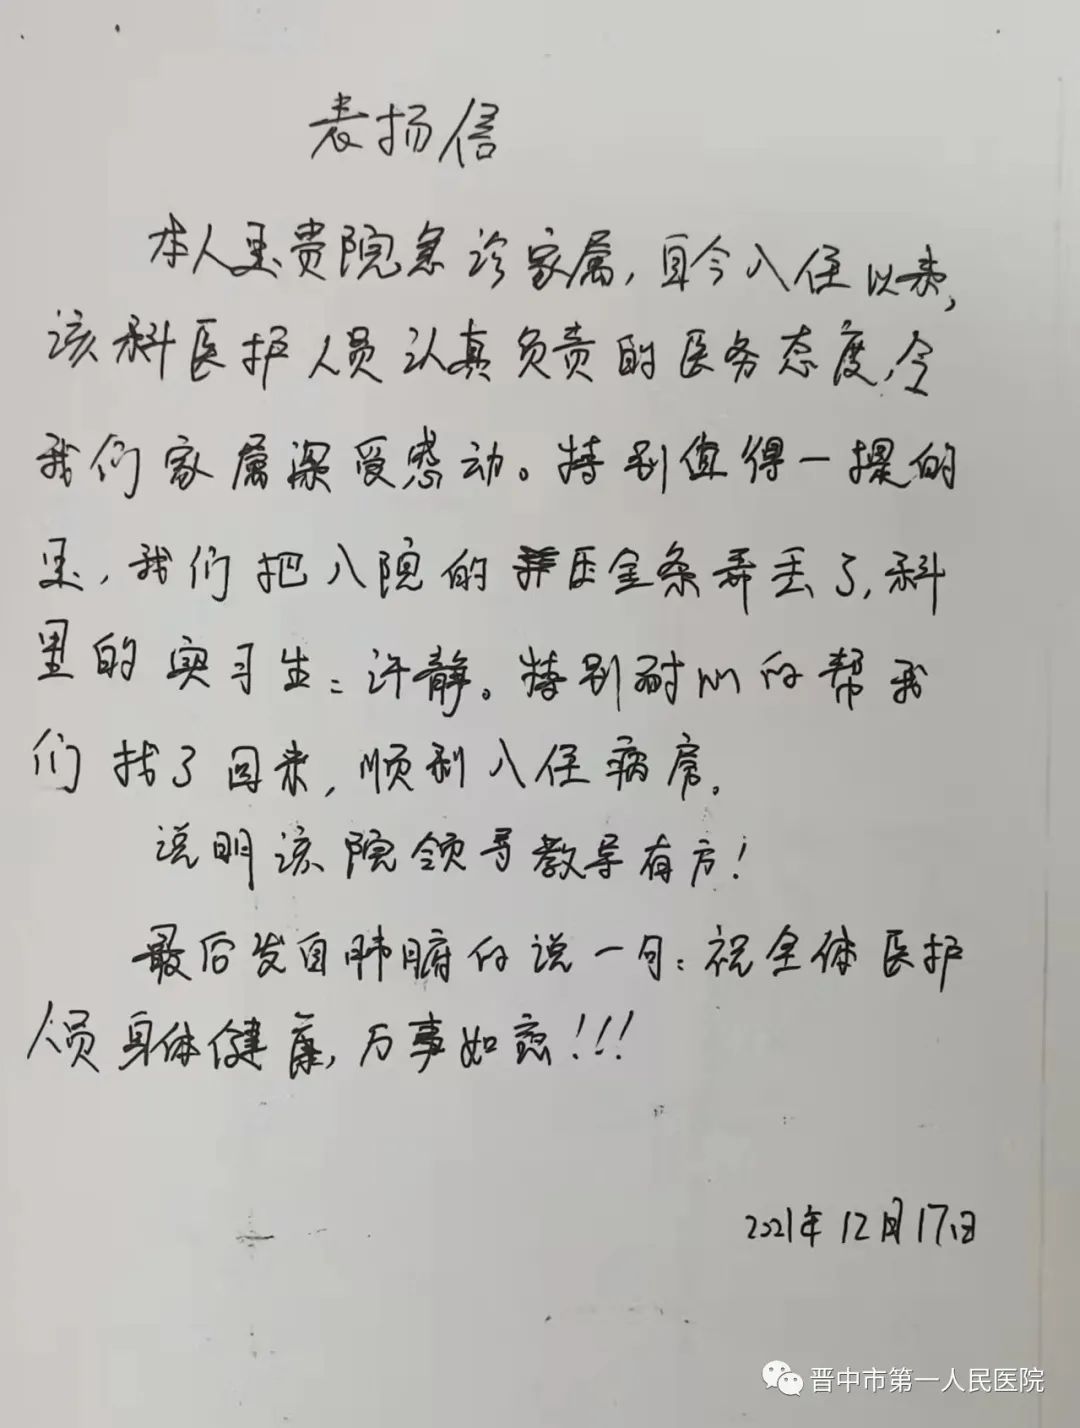 表扬信
本人是贵院急诊家属，自今入住以来，
该科医护人员认真负责的医务态度，令
我们家属深受感动。特别值得一提的
是，我们把入院的压金条弄丢了，科
里的实习生：许静。特别耐心的帮我
们找了回来，顺利入住病房。
说明该院领导教导有方！
最后发自肺腑的说一句：祝全体医护
人员身体健康，万事如意！！！
2021年12月17日
晋中市第一人民医院